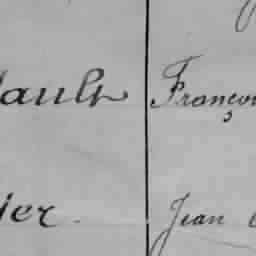 ault Franço
ier. Jean